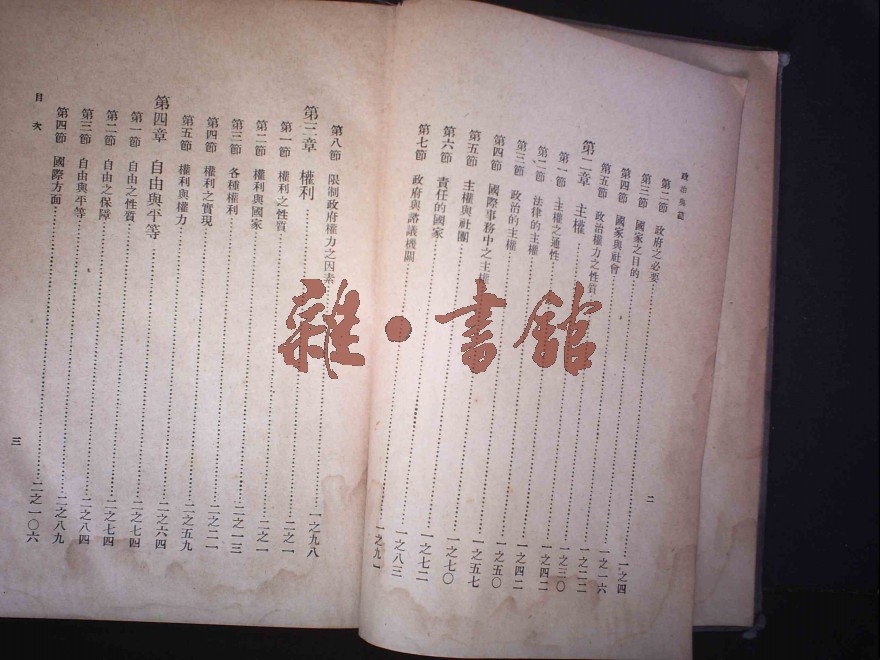 政治典範
第二節 政府之必要……一之四
第三節 國家之目的……一之一六
第四節 國家與社會……一之二二
第五節 政治權力之性質……一之三〇
第二章 主權……一之四二
第一節 主權之通性……一之四二
第二節 法律的主權……一之五〇
第三節 政治的主權……一之五七
第四節 國際事務中之主權……一之七〇
第五節 主權與社團……一之七二
第六節 責任的國家……一之八三
第七節 政府與諮議機關……一之九一
二
第八節 限制政府權力之因素……一之九八
第三章 權利……二之一
第一節 權利之性質……二之一
第二節 權利與國家……二之一三
第三節 各種權利……二之二一
第四節 權利之實現……二之五九
第五節 權利與權力……二之六四
第四章 自由與平等……二之七四
第一節 自由之性質……二之七四
第二節 自由之保障……二之八四
第三節 自由與平等……二之八九
第四節 國際方面……二之一〇六
目次
三
雜·書館